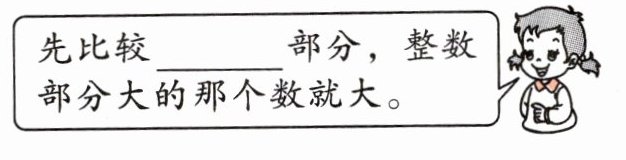 先比较________部分，整数
部分大的那个数就大。